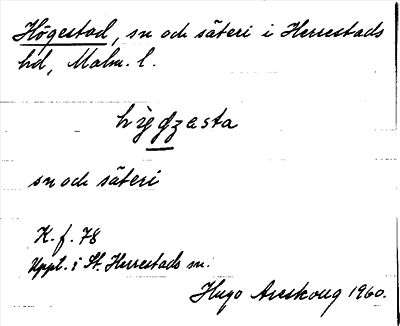 Högestad, sn och säteri i Herrestads
hd, Malm. l.
sn och säteri
K. f. 78
Uppt. i St. Herrestads sn.
Hugo Areskoug 1960.